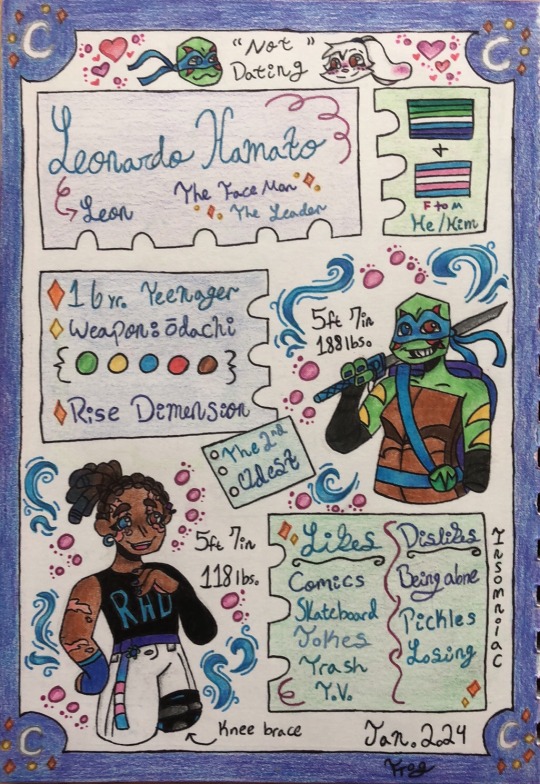 "Not"
Dating
Leonardo Hamato
Leon
The Face Man
The Leader
+
F to M
He/Him
16 yr. Teenager
Weapon: ōdachi
Rise Dimension
5ft 7in
188lbs.
The 2nd
Oldest
5ft 7in
118lbs.
RAD
Knee brace
Likes
Comics
Skateboard
Jokes
Trash
T.V.
Dislikes
Being alone
Pickles
Losing
Insomniac
Jan. 2024
C
C
C
C